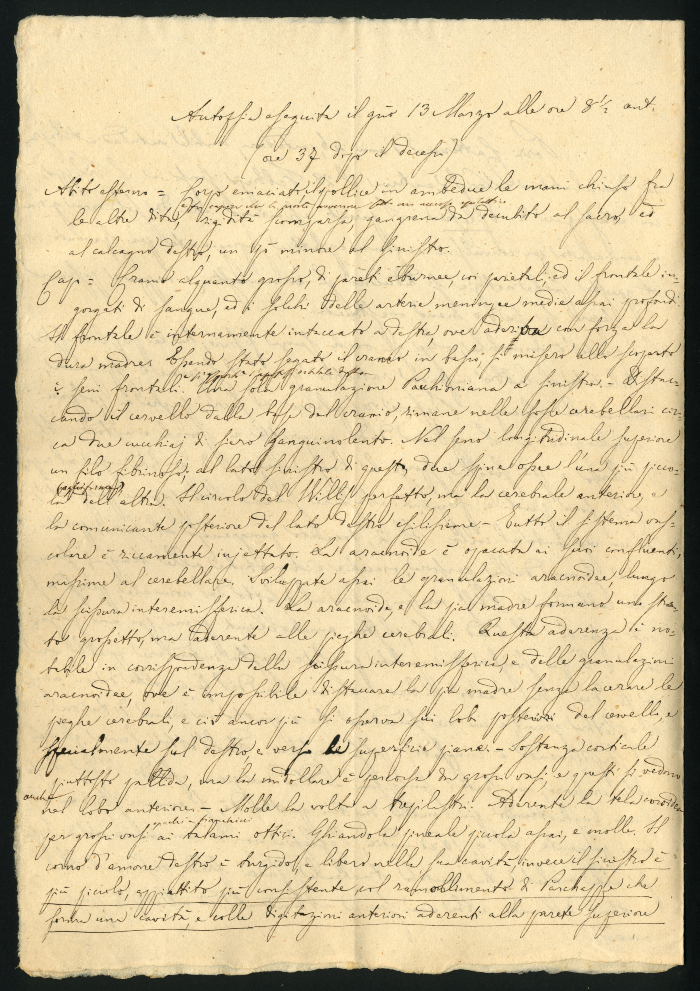 Autopsia eseguita il gno 13 Marzo alle ore 8 1/2 ant.
(ore 37 dopo il decesso)
Abito esterno = Corpo emaciato, pollice in ambedue le mani chiuso fra
le altre dita, rigidità scomparsa gangrena da decubito al sacro, ed
al calcagno destro, un pò minore al sinistro.
Cap = Cranio alquanto grosso, di pareti eburnee, coi parietali, ed il frontale in-
gorgati di sangue, ed i solchi delle arterie meningee medie assai profondi.
Il frontale è internamente intaccato a destra, ove aderiva con forza la
dura madre. Essendo stato segato il cranio in basso, si misero allo scoperto
i seni frontali. Una sola granulazione Pacchioniana a sinistra. - Distac-
cando il cervello dalla base del cranio, rimane nelle fosse cerebellari cir-
ca due cucchiaj di siero sanguinolento. Nel seno longitudinale superiore
un filo fibrinoso: al lato sinistro di questo, due spine ossee l'una più picco-
la dell'altra. Il circolo del Willis perfetto, ma la cerebrale anteriore, e
la comunicante posteriore del lato destro esilissime - Tutto il sistema vas-
colare è riccamente injettato. La aracnoide è opacata ai suoi confluenti,
massime al cerebellare. Sviluppate assai le granulazioni aracnoidee, lungo
la scissura interemisferica. La aracnoide, e la pia madre formano uno stra-
to grossetto, ma aderente alle pieghe cerebrali. Questa aderenza è no-
tabile in corrispondenza della scissura interemisferica, e delle granulazioni
aracnoidee, ove è impossibile distaccare la pia madre senza lacerare le
pieghe cerebrali, e ciò ancor più si osserva sui lobi posteriori del cervello, e
specialmente sul destro e verso la superficie piana. - Sostanza corticale
piuttosto pallida, ma la midollare è percorsa da grossi vasi, e questi si vedono
anche
nel lobo anteriore. - Molle la volta a tre pilastri. Aderente la tela coroidea
per grossi vasi ai talami ottici. Ghiandola pineale piccola assai, e molle. Il
corno d'amone destro è turgido, e libero nella sua cavità, invece il sinistro è
più piccolo, appiattito più consistente col rammollimento di Parchappe che
forma una cavità, e colle digitazioni anteriori aderenti alla parete superiore